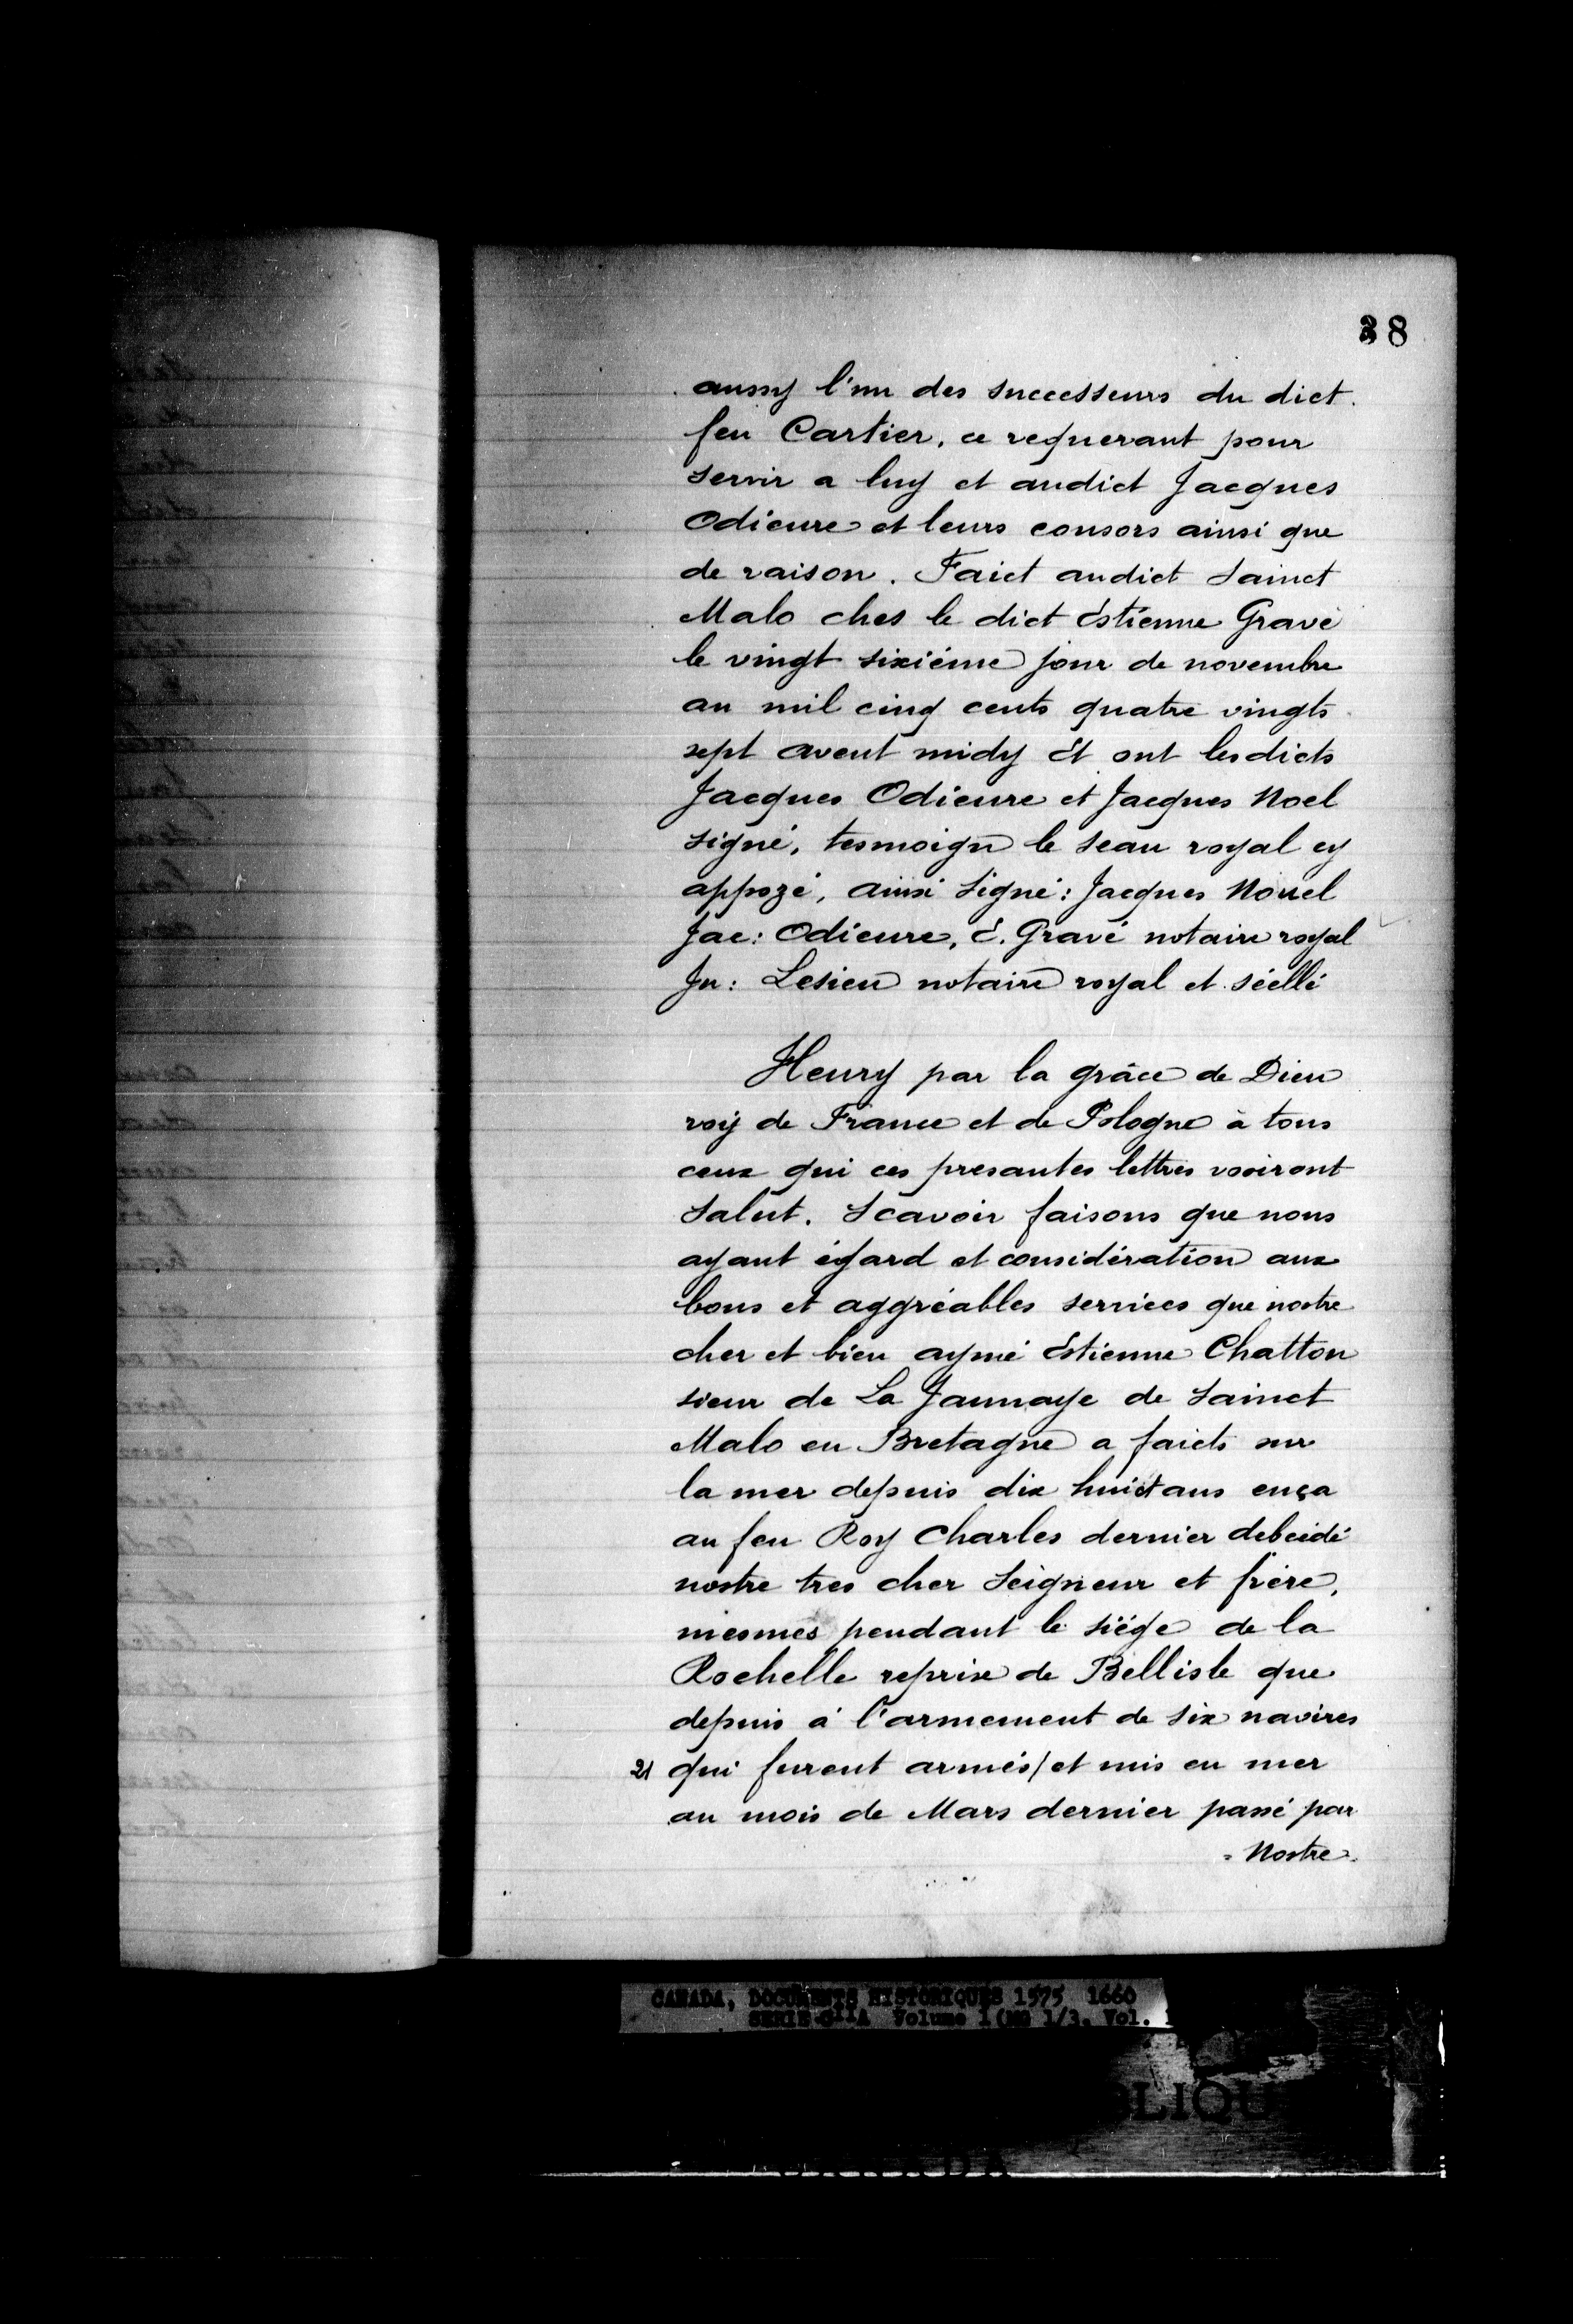 38
aussy l'un des successeurs du dict
feu Cartier, ce requerant pour
servir a luy et audict Jacques
Odieure et leurs consors ainsi que
de raison. Faict audict Sainct
Malo ches le dict Estienne Gravé
le vingt sixiéme jour de novembre
an mil cinq cents quatre vingts
sept avent midy Et ont lesdicts
Jacques Odieure et Jacques Noel
signé, tesmoign le seau royal cy
appozé, ainsi signé: Jacques Nouel
Jac: Odieure, E. Gravé notaire royal
Ju: Lesieu notaire royal et séellé
Henry par la grâce de Dieu
roy de France et de Pologne à tous
ceux qui ces presantes lettres voiront
Salut. Scavoir faisons que nous
ayant égard et considération aux
bons et aggréables services que nostre
cher et bien aymé Estienne Chatton
sieur de La Jaunaye de Sainct
Malo en Bretagne a faicts sur
la mer depuis dix huict ans ença
au feu Roy Charles dernier debcidé
nostre tres cher Seigneur et frère,
mesmes pendant le siége de la
Rochelle reprise de Bellisle que
depuis à l'armement de six navires
21 qui furent armés/et mis en mer
au mois de Mars dernier passé par
= Nostre =
CANADA, DOCUMENTS HISTORIQUES 1575 1660
SERIE C11A Volume 1 (MG 1/3, Vol.
BLIQU